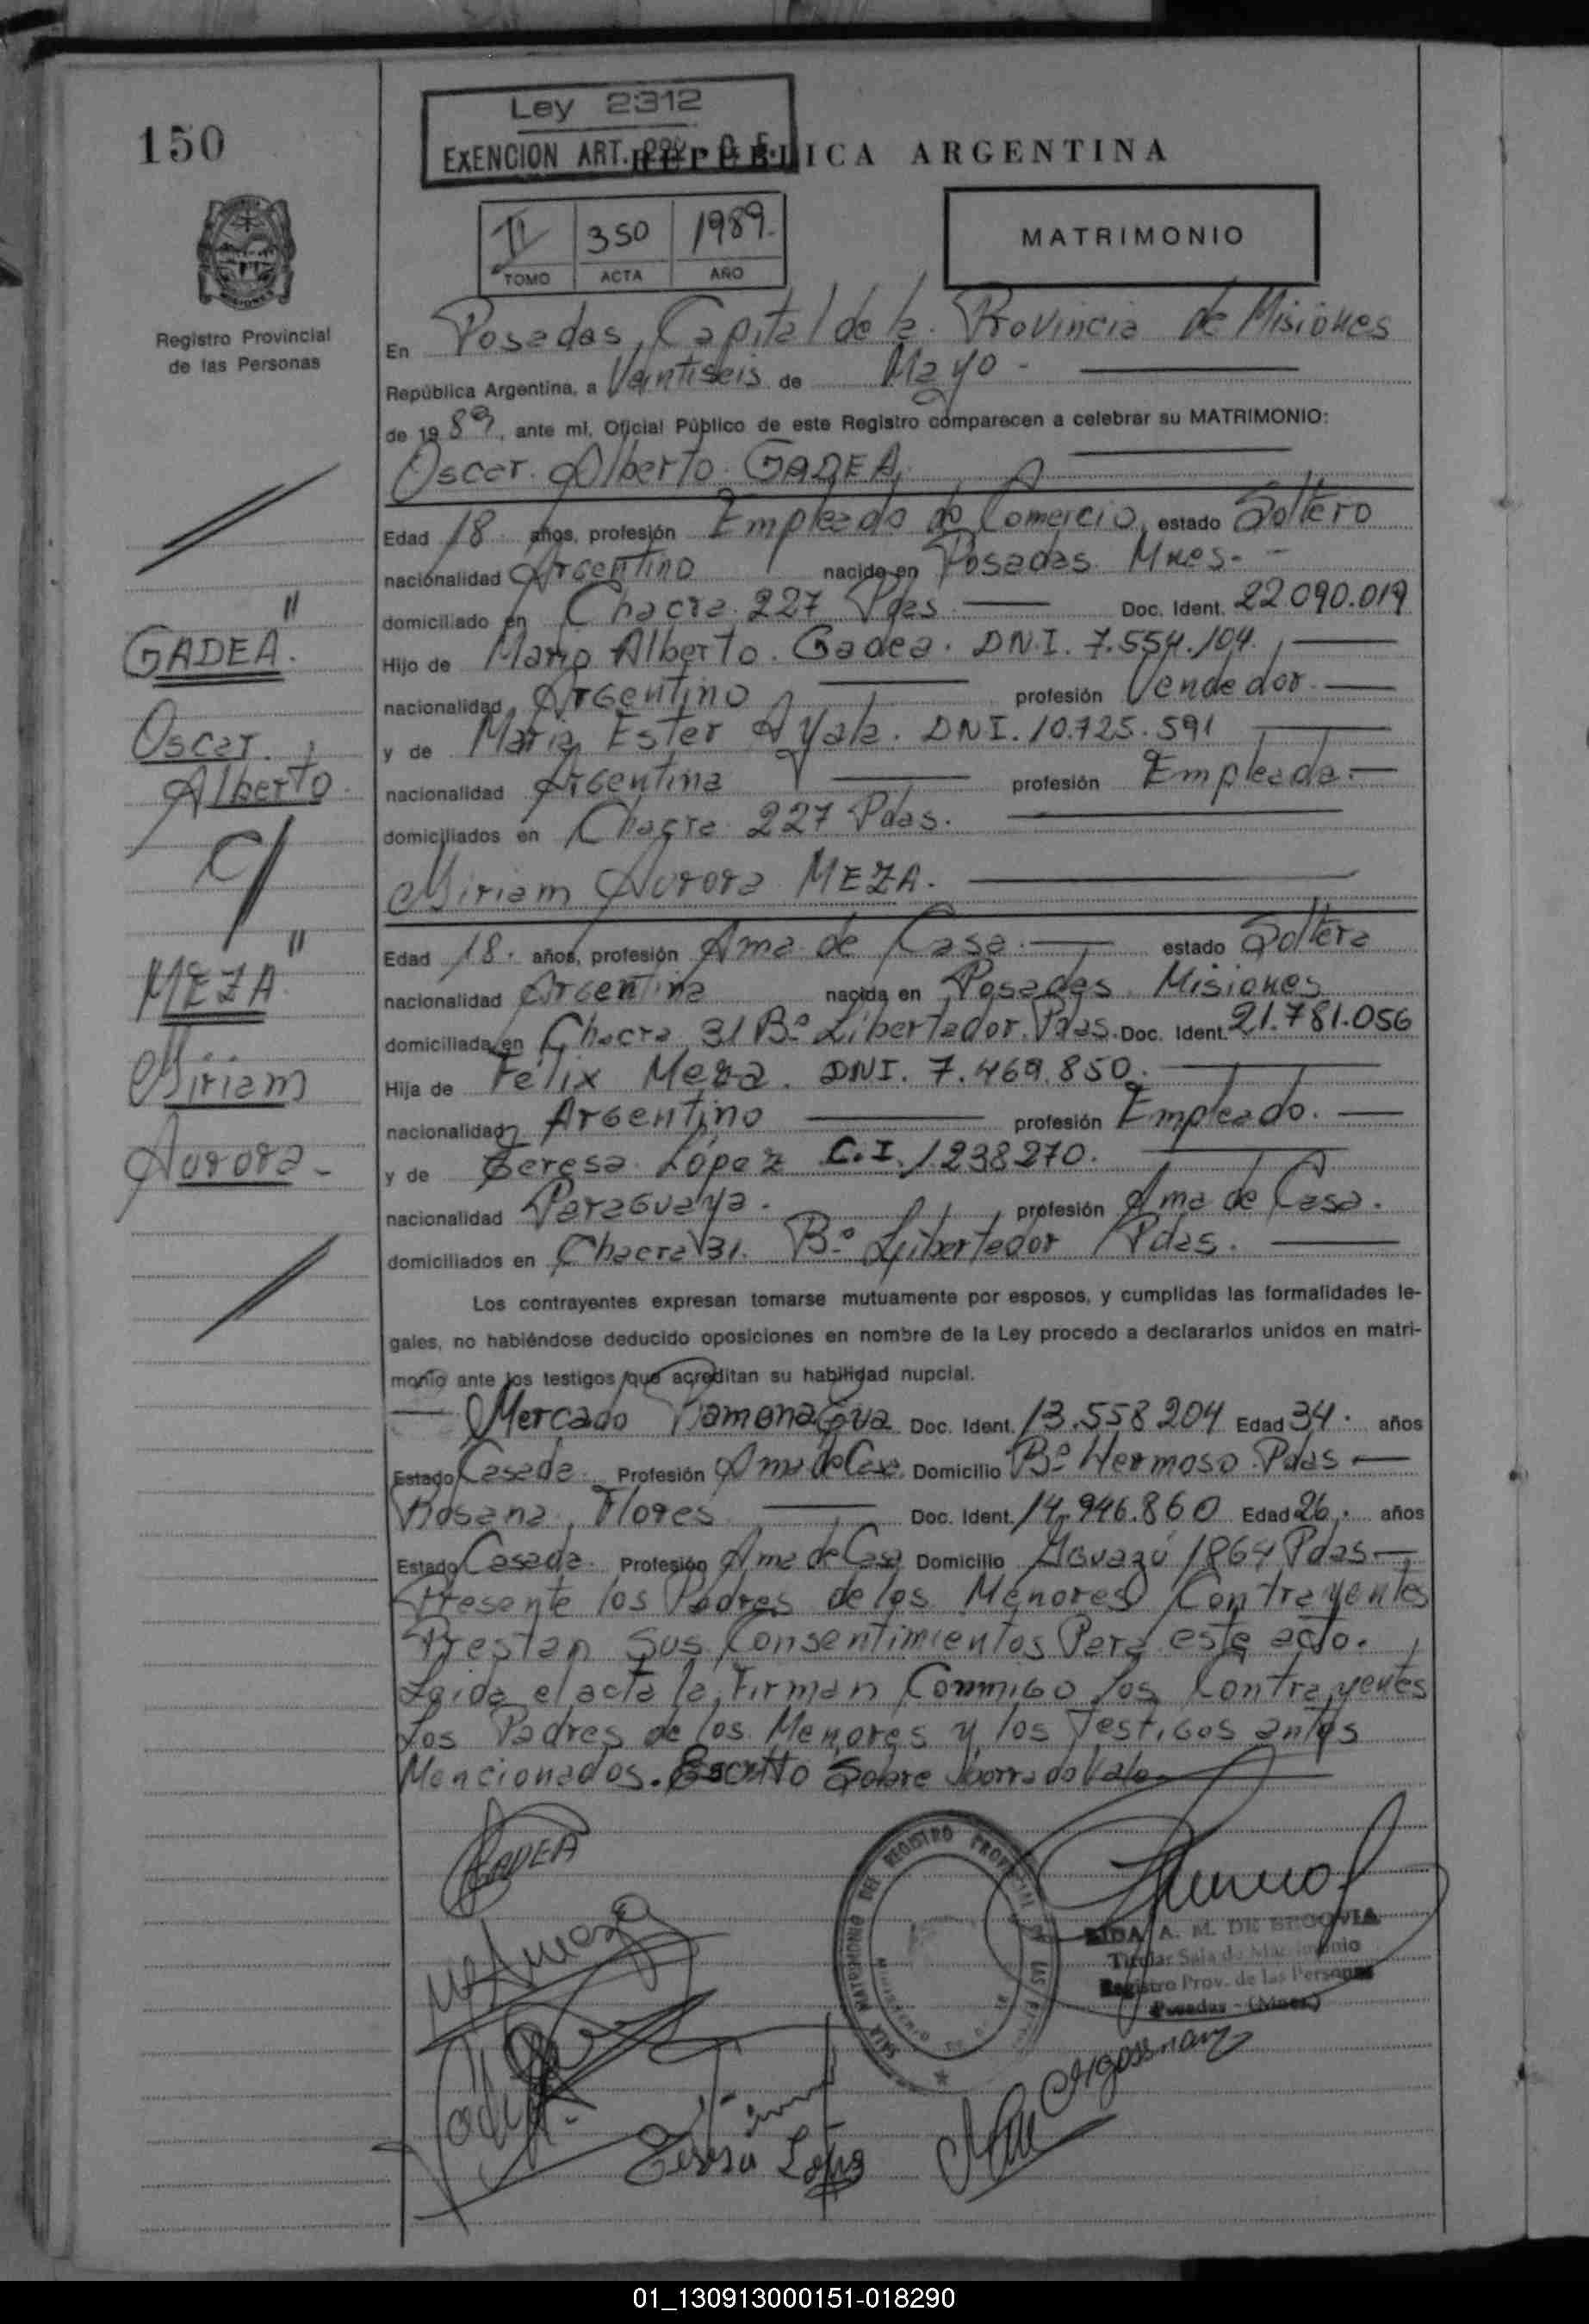 150
Ley 2312
EXENCION ART.
REPUBLICA ARGENTINA
II 350 1989.
TOMO ACTA AÑO
MATRIMONIO
Registro Provincial
de las Personas
En Posadas, Capital de la Provincia de Misiones
República Argentina, a Veintiseis de Mayo -
de 1989, ante mí, Oficial Público de este Registro comparecen a celebrar su MATRIMONIO:
Oscar Alberto GADEA
Edad 18 años, profesión Empleado do Comercio, estado Soltero
nacionalidad Argentino nacido en Posadas Mnes.-
domiciliado en Chacra 227 Pdas Doc. Ident. 22.090.019
Hijo de Mario Alberto Gadea. DN.I. 7.554.104.
nacionalidad Argentino profesión Vendedor.
y de Maria Ester Ayala. DNI. 10.725.591
nacionalidad Argentina profesión Empleada.
domiciliados en Chacra 227 Pdas.
Miriam Aurora MEZA.
Edad 18. años, profesión Ama de Casa. estado Soltera
nacionalidad Argentina nacida en Posadas Misiones
domiciliada en Chacra 31 Bº Libertador. Pdas. Doc. Ident. 21.781.056
Hija de Felix Meza. DNI. 7.469.850.
nacionalidad Argentino profesión Empleado.
y de Teresa López C.I. 1238270.
nacionalidad Paraguaya. profesión Ama de Casa.
domiciliados en Chacra 31. Bº Libertador Pdas.
GADEA"
Oscar
Alberto
C/
MEZA"
Miriam
Aurora-
Los contrayentes expresan tomarse mutuamente por esposos, y cumplidas las formalidades le-
gales, no habiéndose deducido oposiciones en nombre de la Ley procedo a declararlos unidos en matri-
monio ante los testigos que acreditan su habilidad nupcial.
Mercado Ramona Eva Doc. Ident. 13.558204 Edad 34. años
Estado Casada Profesión Ama de Casa Domicilio Bº Hermoso Pdas
Rosana Flores Doc. Ident. 14.946.860 Edad 26. años
Estado Casada. Profesión Ama de Casa Domicilio Aguazú 1864 Pdas
Presente los Padres de los Menores Contrayentes
Prestan sus Consentimientos Para este acto.
Leida el acta la Firman Conmigo los Contrayentes
Los Padres de los Menores y los Testigos antes
Mencionados. Escrito Sobre borrado Vale.
GADEA
SALA MATRIMONIO DEL REGISTRO PROVINCIAL DE LAS
A. M. DE SEGOVIA
Titular Sala de Matrimonio
Registro Prov. de las Personas
Posadas - (Mnes.)
Teresa López
01_130913000151-018290